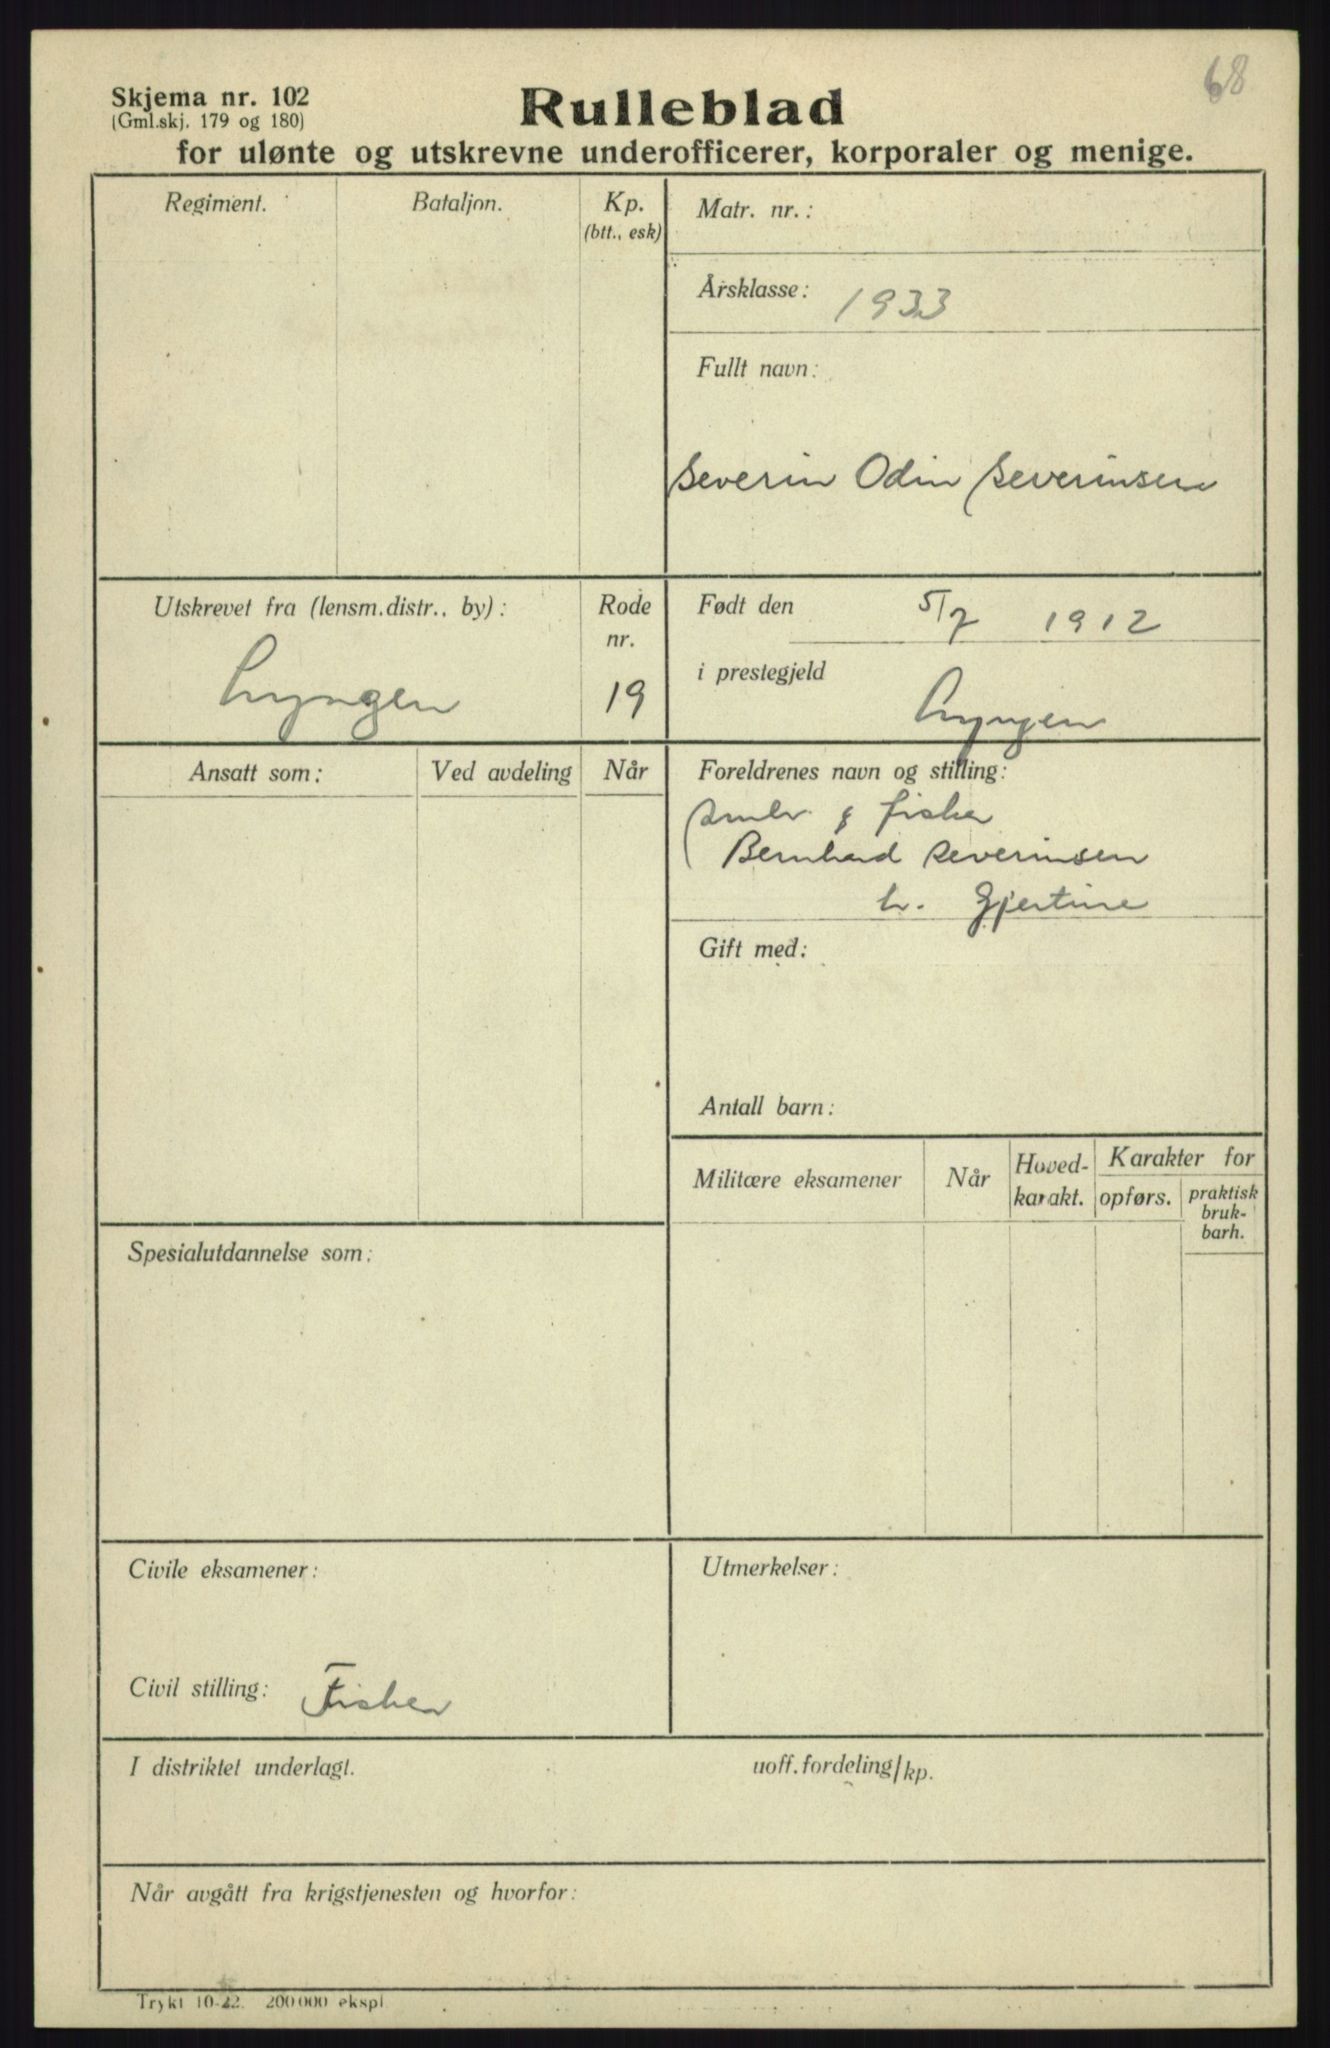 68
Skjema nr. 102
(Gml.skj. 179 og 180)
Rulleblad
for ulønte og utskrevne underofficerer, korporaler og menige.
Regiment.
Bataljon.
Kp.
(btt., esk)
Matr. nr.:
Årsklasse: 1933
Fullt navn:
Severin Odin Severinsen
Utskrevet fra (lensm.distr., by):
Lyngen
Rode
nr.
19
Født den 5/7 1912
i prestegjeld
Lyngen
Ansatt som:
Ved avdeling
Når
Foreldrenes navn og stilling:
Småbr. & fisker
Bernhard Severinsen
h. Gjertine
Gift med:
Antall barn:
Militære eksamener
Når
Hoved-
karakt.
Karakter for
opførs.
praktisk
bruk-
barh.
Spesialutdannelse som:
Civile eksamener:
Civil stilling: Fisker
Utmerkelser:
I distriktet underlagt.
uoff.fordeling/kp.
Når avgått fra krigstjenesten og hvorfor:
Trykt 10-22. 200 000 ekspl.